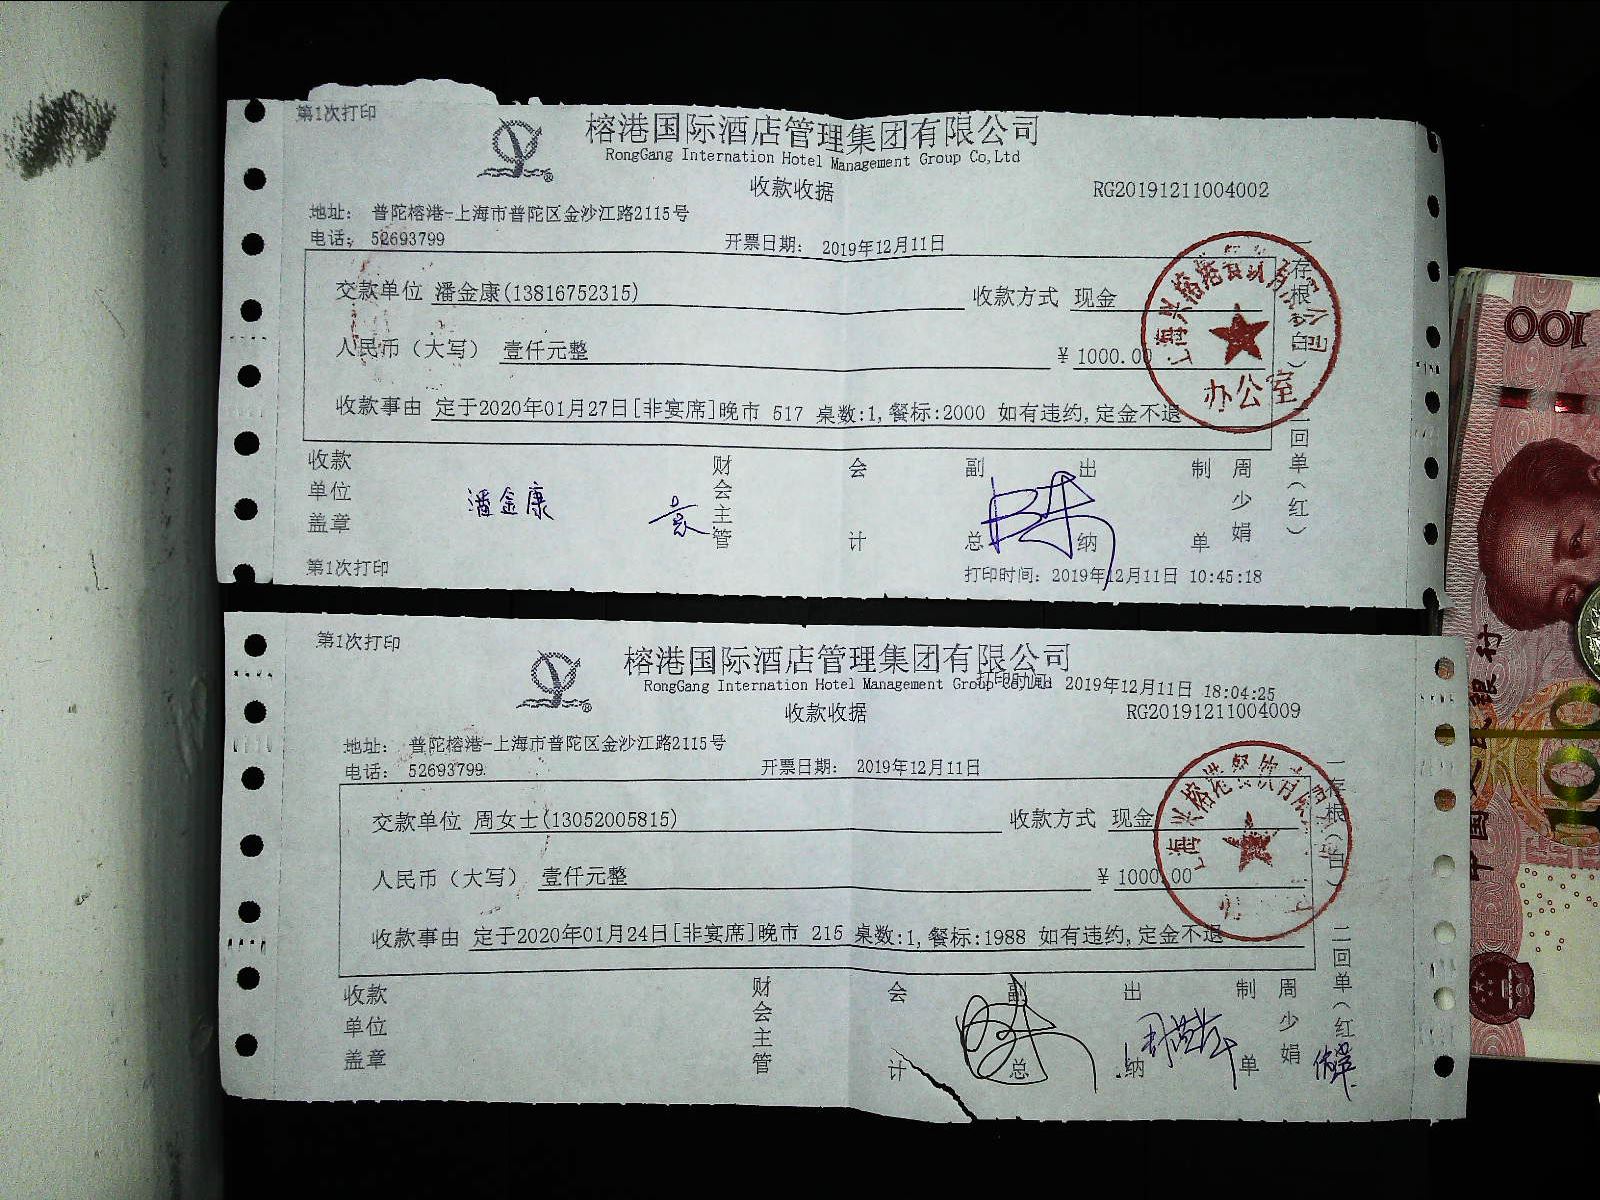 第1次打印
榕港国际酒店管理集团有限公司
RongGang Internation Hotel Management Group Co,Ltd
收款收据
RG20191211004002
地址: 普陀榕港-上海市普陀区金沙江路2115号
电话: 52693799
开票日期: 2019年12月11日
交款单位 潘金康(13816752315) 收款方式 现金
人民币(大写) 壹仟元整 ¥ 1000.00
收款事由 定于2020年01月27日[非宴席]晚市 517 桌数:1,餐标:2000 如有违约,定金不退
一存根(白)
二回单(红)
上海兴榕港餐饮有限公司
办公室
收款单位盖章
潘金康
袁
财会主管
会计
副总
出纳
制单
周少娟
第1次打印
打印时间: 2019年12月11日 10:45:18
第1次打印
榕港国际酒店管理集团有限公司
RongGang Internation Hotel Management Group Co,Ltd
打印时间: 2019年12月11日 18:04:25
收款收据
RG20191211004009
地址: 普陀榕港-上海市普陀区金沙江路2115号
电话: 52693799
开票日期: 2019年12月11日
交款单位 周女士(13052005815) 收款方式 现金
人民币(大写) 壹仟元整 ¥ 1000.00
收款事由 定于2020年01月24日[非宴席]晚市 215 桌数:1,餐标:1988 如有违约,定金不退
一存根(白)
二回单(红)
上海兴榕港餐饮有限
收款单位盖章
财会主管
会计
副总
出纳
制单
周少娟
100
中国人民银行
100